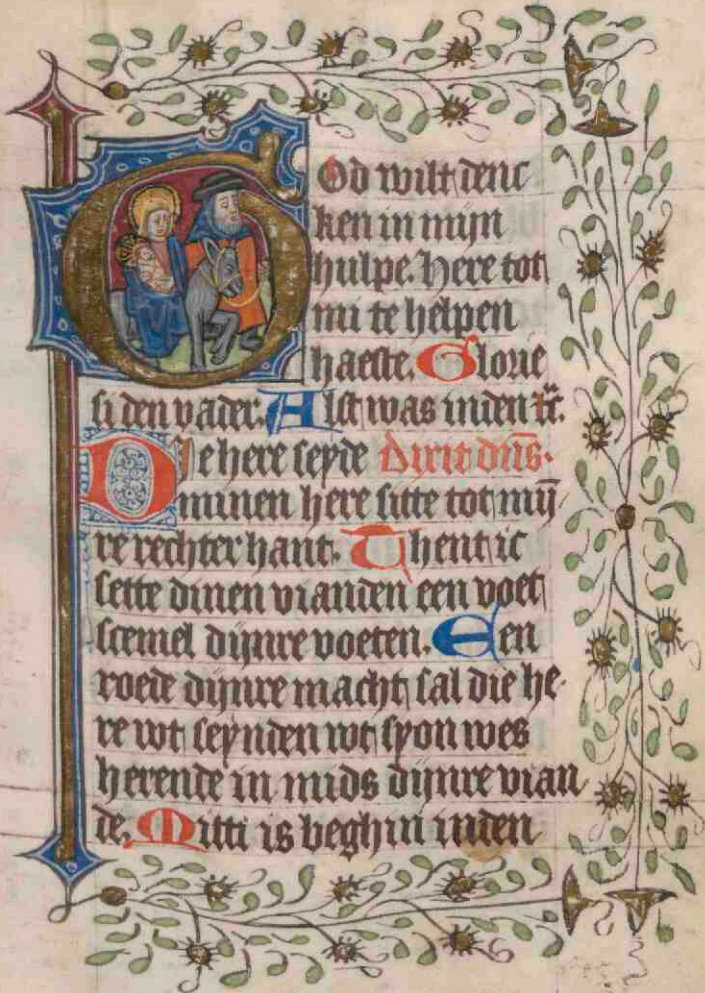 God wilt denc
ken in mijn
hulpe. Here tot
mi te helpen
haeste. Glorie
si den vader. Alst was inden
Die here seyde Dixit dn̄s.
minen here sitte tot mij̄
re rechter hant. Thent ic
sette dinen vianden een voet
scemel dijnre voeten. Een
roede dijnre macht sal die he
re wt seynden wt syon wes
herende in mids dijnre vian
de. Mitti is beghin inden